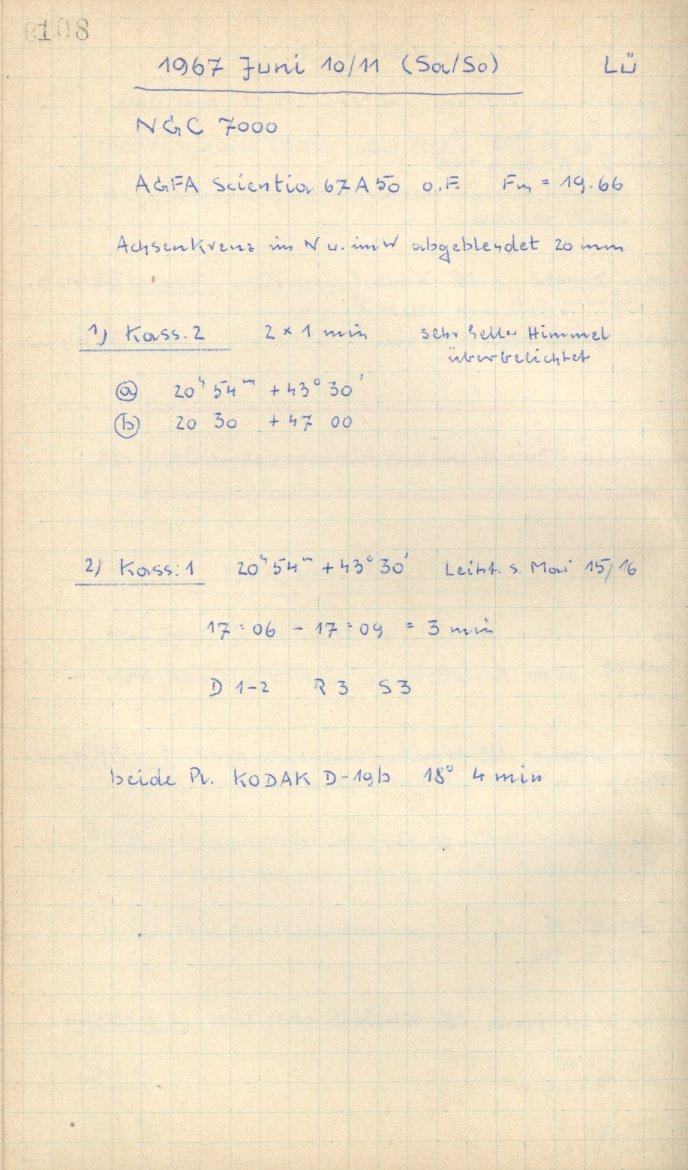 108
1967 Juni 10/11 (Sa/So) Lü
NGC 7000
AGFA Scientia 67A50 o.F. Fn = 19.66
Achsenkreuz im N u. im W abgeblendet 20 mm
1) Kass. 2 2 × 1 min sehr heller Himmel
überbelichtet
ⓐ 20ʰ 54ᵐ +43° 30'
ⓑ 20 30 +47 00
2) Kass: 1 20ʰ 54ᵐ +43° 30' Leitst. s. Mai 15/16
17:06 – 17:09 = 3 min
D 1-2 R 3 S 3
beide Pl. KODAK D-19b 18° 4 min